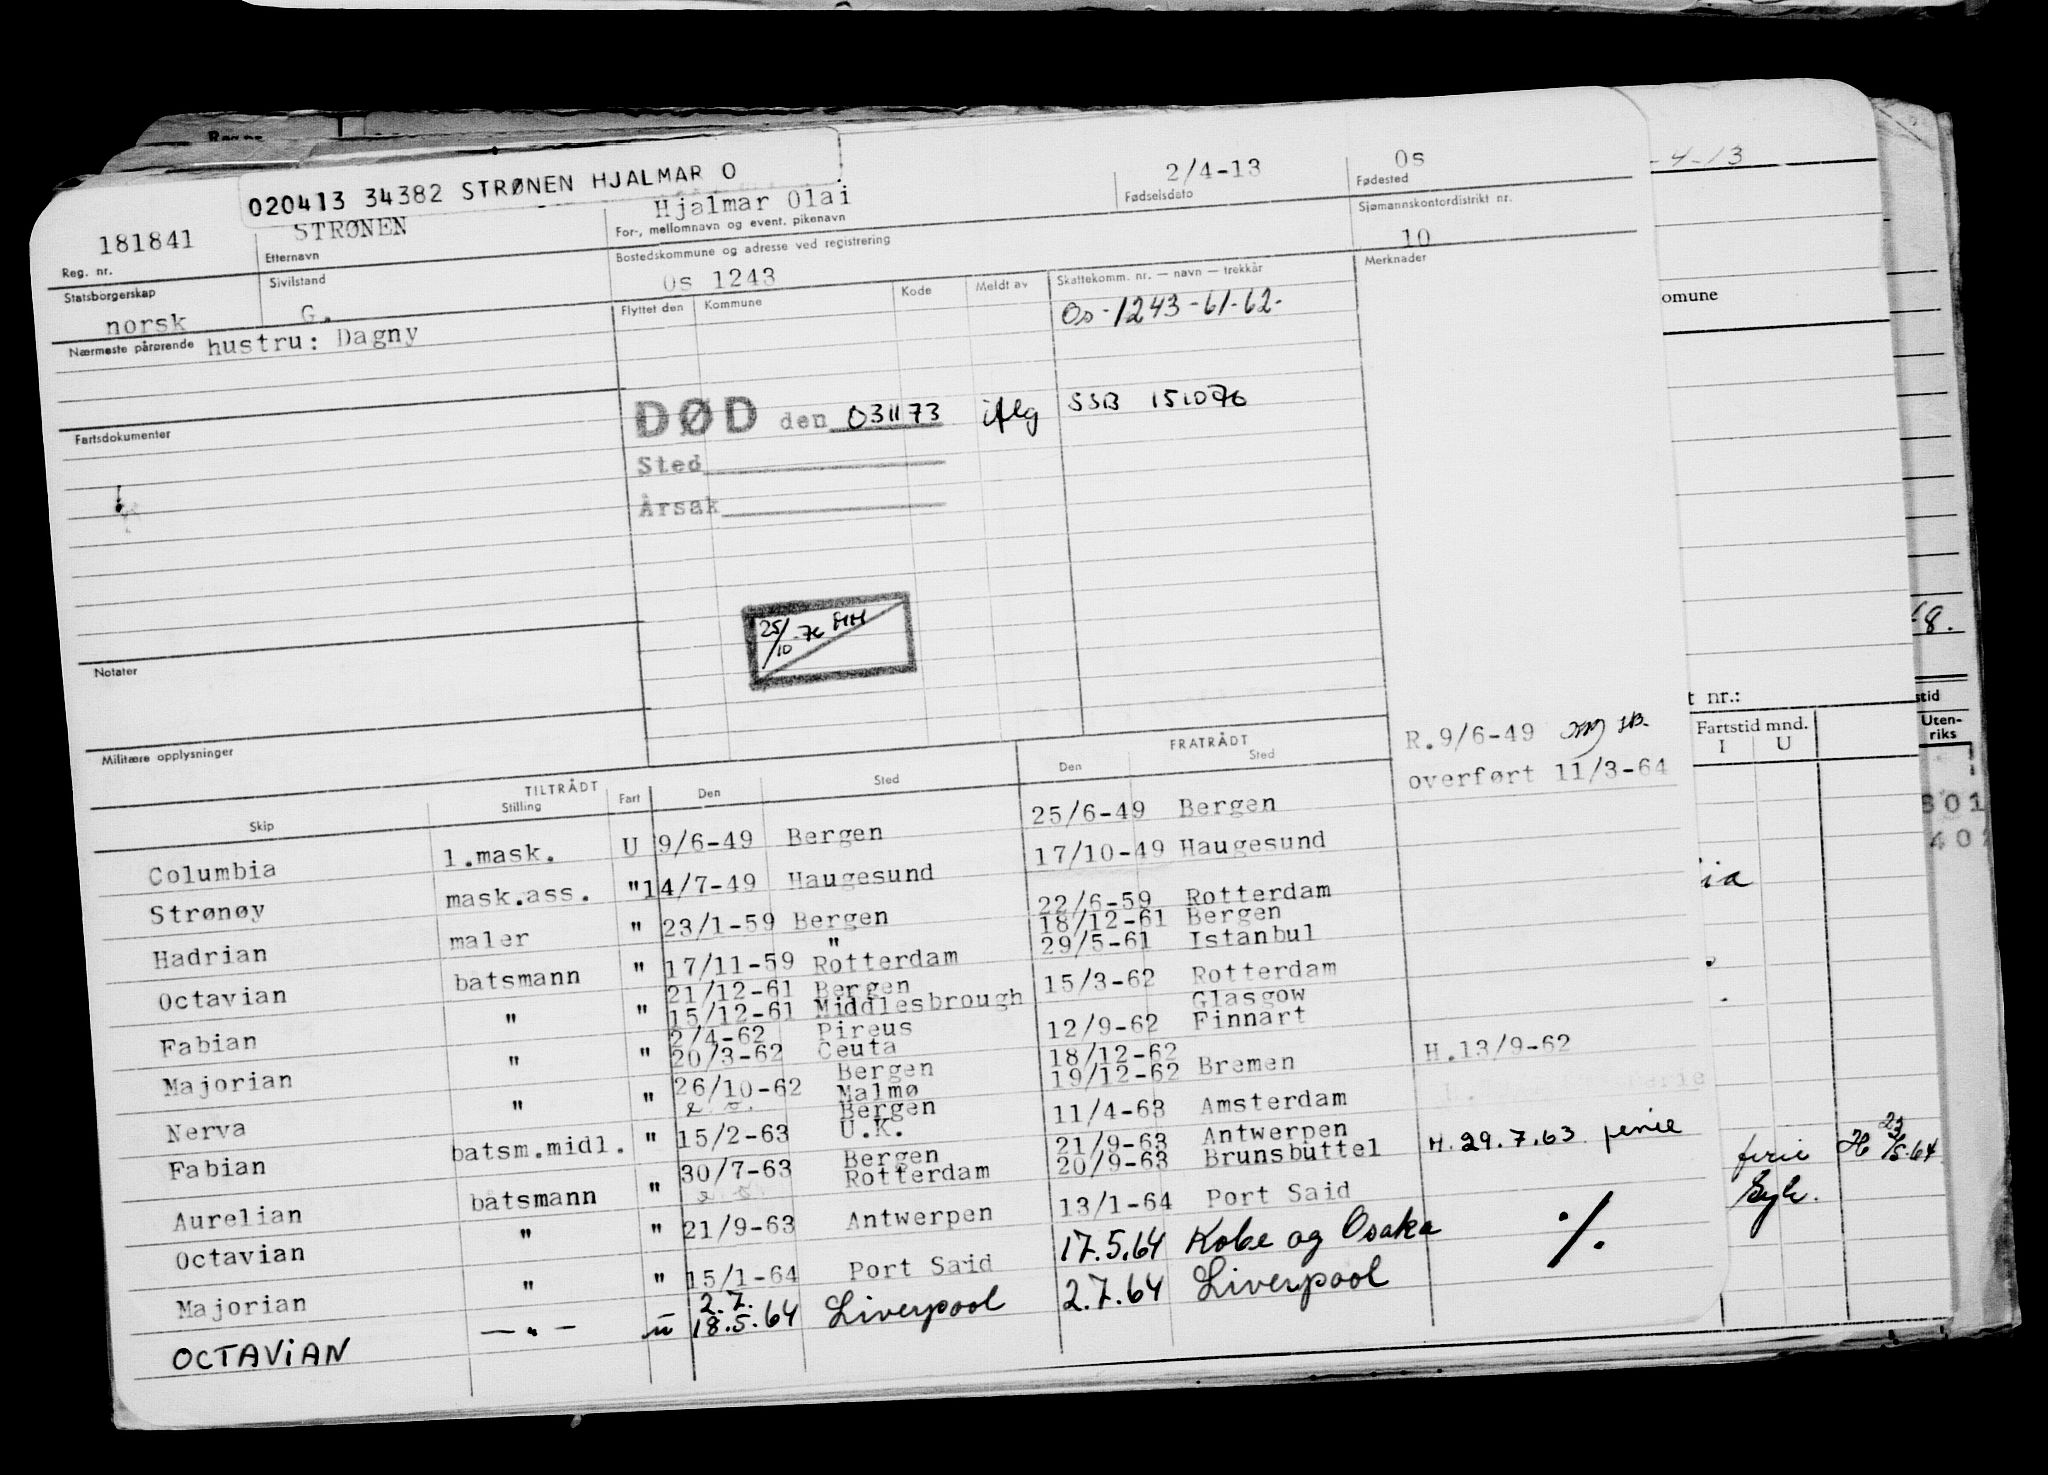 Reg.nr.
020413 34382 STRØNEN HJALMAR O
181841 STRØNEN Hjalmar Olai 2/4-13 Os
Reg. nr. Etternavn For-, mellomnavn og event. pikenavn Fødselsdato Fødested
Statsborgerskap Sivilstand Bostedskommune og adresse ved registrering Sjømannskontordistrikt nr.
norsk G. Os 1243 10
Nærmeste pårørende hustru: Dagny Flyttet den Kommune Kode Meldt av Skattekomm. nr. — navn — trekkår Merknader
Os-1243-61-62-
Fartsdokumenter
DØD den 031173 iflg SSB 151076
Sted
Årsak
25/10-76 HH
Notater
Militære opplysninger
R.9/6-49
overført 11/3-64
TILTRÅDT FRATRÅDT
Skip Stilling Fart Den Sted Den Sted
Columbia 1.mask. U 9/6-49 Bergen 25/6-49 Bergen
Strønøy mask.ass. " 14/7-49 Haugesund 17/10-49 Haugesund
Hadrian maler " 23/1-59 Bergen 22/6-59 Rotterdam
" 18/12-61 Bergen
Octavian båtsmann " 17/11-59 Rotterdam 29/5-61 Istanbul
21/12-61 Bergen
Fabian " " 15/12-61 Middlesbrough 15/3-62 Rotterdam
2/4-62 Pireus Glasgow
Majorian " " 20/3-62 Ceuta 12/9-62 Finnart
Bergen 18/12-62
Nerva " " 26/10-62 Malmø 19/12-62 Bremen H.13/9-62
Bergen
Fabian batsm.midl. " 15/2-63 U.K. 11/4-63 Amsterdam
Bergen 21/9-63 Antwerpen
Aurelian båtsmann " 30/7-63 Rotterdam 20/9-63 Brunsbuttel H.29.7.63 ferie
Octavian " " 21/9-63 Antwerpen 13/1-64 Port Said
Majorian " " 15/1-64 Port Said 17.5.64 Kobe og Osaka
2.7.
OCTAVIAN — " — u 18.5.64 Liverpool 2.7.64 Liverpool ./.
-4-13
omune
-8.
t nr.:
Fartstid mnd.
I U
stid
Uten-
riks
301
402
ia
ferie
Syk.